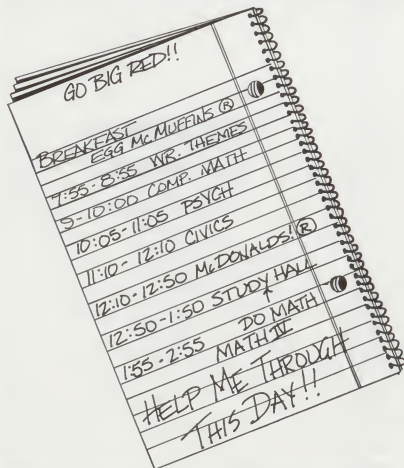 GO BIG RED!!
BREAKFAST
EGG McMUFFINS ®
7:55-8:55 WR. THEMES
9-10:00 COMP. MATH
10:05-11:05 PSYCH
11:10-12:10 CIVICS
12:10-12:50 McDONALDS! ®
12:50-1:50 STUDY HALL
+
DO MATH
1:55-2:55 MATH IV
HELP ME THROUGH
THIS DAY!!